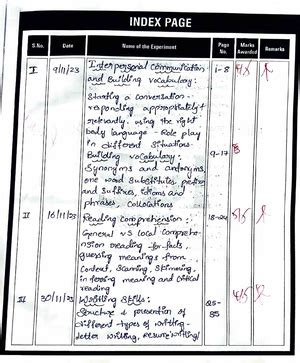 INDEX PAGE
S.No. Date Name of the Experiment Page No. Marks Awarded Remarks
I 9/11/23 Interpersonal Communication 1-8
and Building vocabulary:
Starting a conversation -
responding appropriately &
relevantly. using the right
body language - Role play
in different situations.
Building vocabulary: 9-17
Synonyms and antonyms,
one word substitutes, prefixes
and suffixes, idioms and
phrases, collocations
II 16/11/23 Reading comprehension: 18-24
General vs Local Compre-
hension reading for facts,
guessing meanings from
context, Scanning, Skimming,
inferring meaning and critical
reading
30/11/23 Writing Skills: 25-
Structure & presention of 35
different types of writing-
letter writing, resume writing/